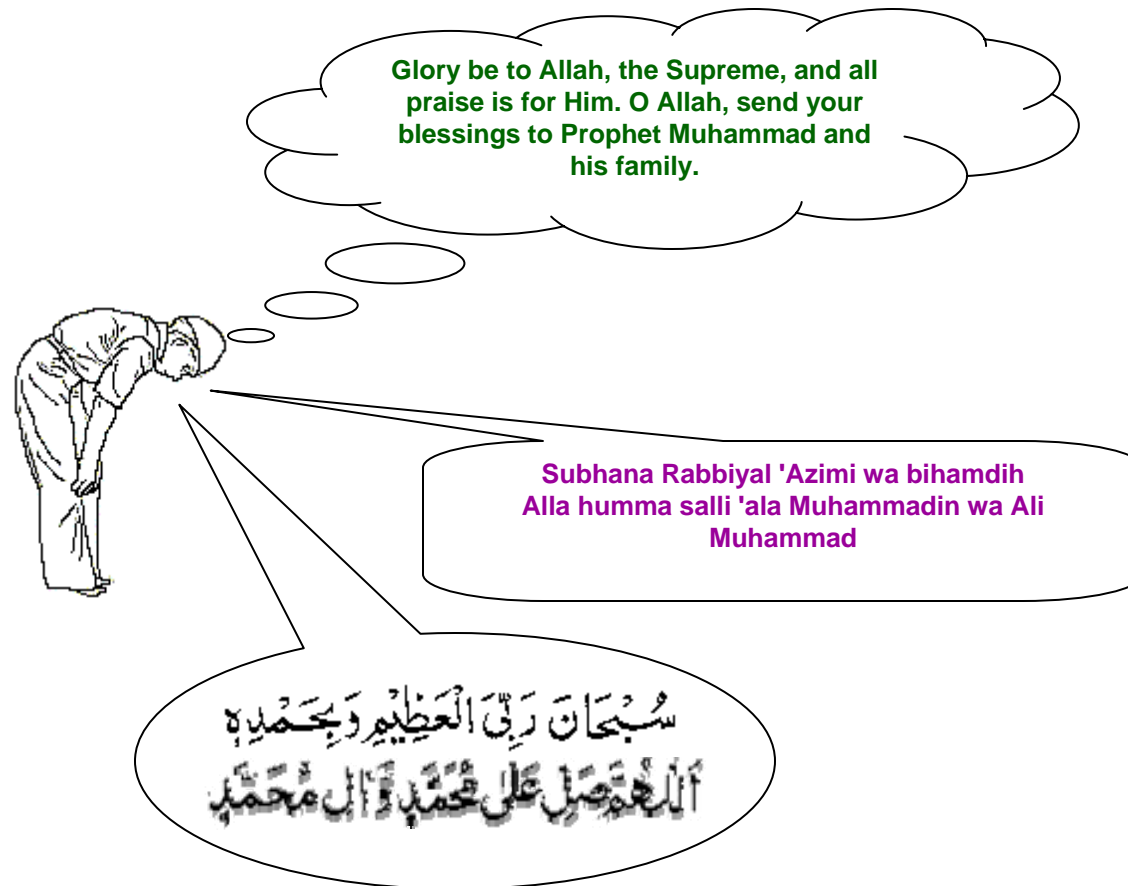 Glory be to Allah, the Supreme, and all
praise is for Him. O Allah, send your
blessings to Prophet Muhammad and
his family.
Subhana Rabbiyal 'Azimi wa bihamdih
Alla humma salli 'ala Muhammadin wa Ali
Muhammad
سُبْحَانَ رَبِّيَ الْعَظِيْمِ وَبِحَمْدِهٖ
اَللّٰهُمَّ صَلِّ عَلٰى مُحَمَّدٍ وَّاٰلِ مُحَمَّدٍ